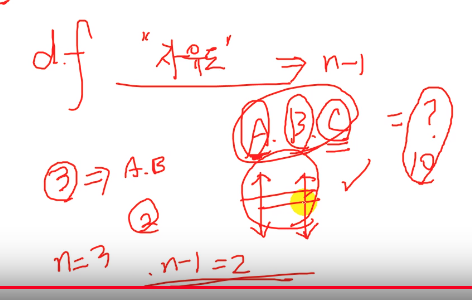 d.f "자유도" ⇒ n-1
A. B. C = ?
10
③ ⇒ A.B
②
n=3 .n-1=2